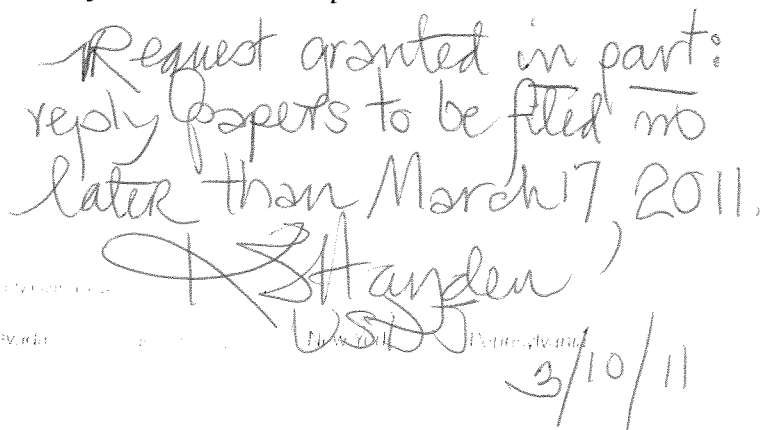 Request granted in part:
reply papers to be filed no
later than March 17, 2011.
KSHayden
USDJ
New York Pennsylvania
3/10/11